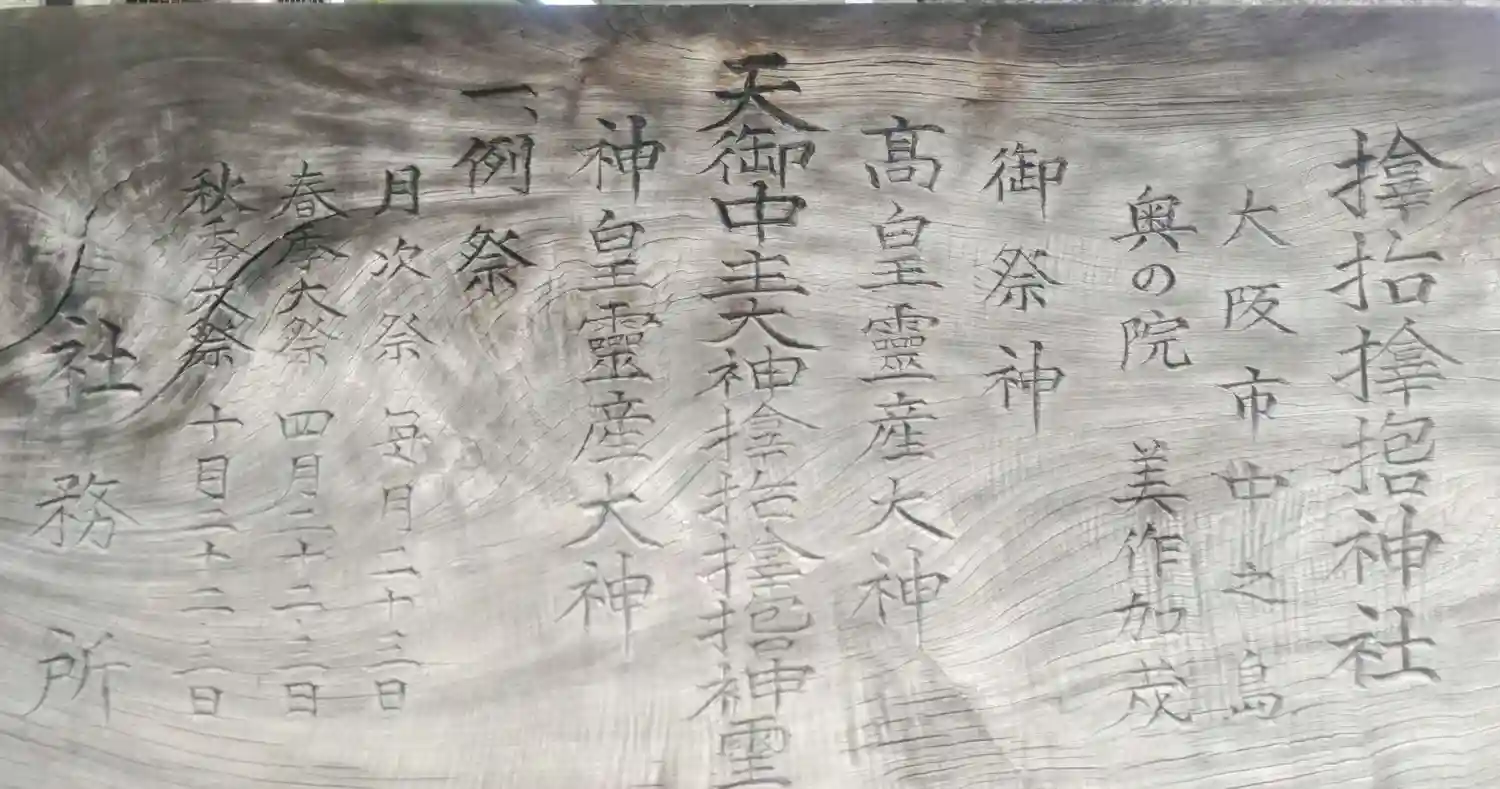 𫝼𪮇𫝼𫝽神社
大阪市中之島
奥の院 美作加茂
御祭神
髙皇靈産大神
天御中主大神𫝼𪮇𫝼𫝽神霊
神皇靈産大神
一、例祭
月次祭 毎月二十三日
春季大祭 四月二十二・三日
秋季大祭 十月二十二・三日
社務所